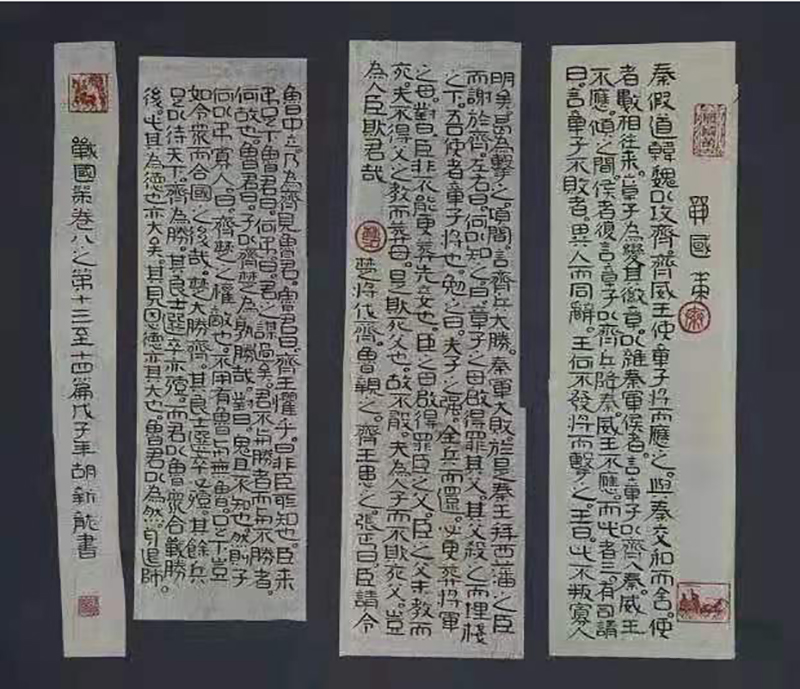 戰國策
齊
秦假道韓魏以攻齊齊威王使章子將而應之。與秦交和而舍。使
者數相往來。章子為變其徽章。以雜秦軍候者。言章子以齊入秦。威王
不應。頃之間候者復言。章子以齊兵降秦。威王不應。而此者三。有司請
曰。言章子不敗者。異人而同辭。王何不發將而擊之。王曰。此不叛寡人
明矣。曷為擊之。頃間。言齊兵大勝。秦軍大敗。於是秦王拜西藩之臣
而謝於齊。左右曰。何以知之。曰。章子之母啟得罪其父。其父殺之而埋棧
之下。吾使者章子將也。勉之曰。夫子之強。全兵而還。必更葬將軍
之母。對曰。臣非不能更葬先妾也。臣之母啟得罪臣之父。臣之父未教而
死。夫不得父之教而葬母。是欺死父也。故不敢。夫為人子而不欺死父。豈
為人臣欺君哉 楚將伐齊。魯親之。齊王患之。張丐曰。臣請令
魯中立。乃為齊見魯君。魯君曰。齊王懼乎。曰。非臣所知也。臣來
弔足下。魯君曰。何弔。曰。君之謀過矣。君不與勝者而與不勝者。
何故也。魯君曰。子以齊楚為孰勝哉。對曰。鬼且不知也。然則子
何以弔寡人。曰。齊楚之權敵也。不用有魯與無魯。足下豈
如令眾而合國之後哉。楚大勝齊。其良士選卒必殪。其餘兵
足以待天下。齊為勝。其良士選卒亦殪。而君以魯眾合戰勝
後。此其為德也亦大矣。其見恩德亦其大也。魯君以為然。身退師。
戰國策卷八之第十三至十四篇戊子年胡新龍書